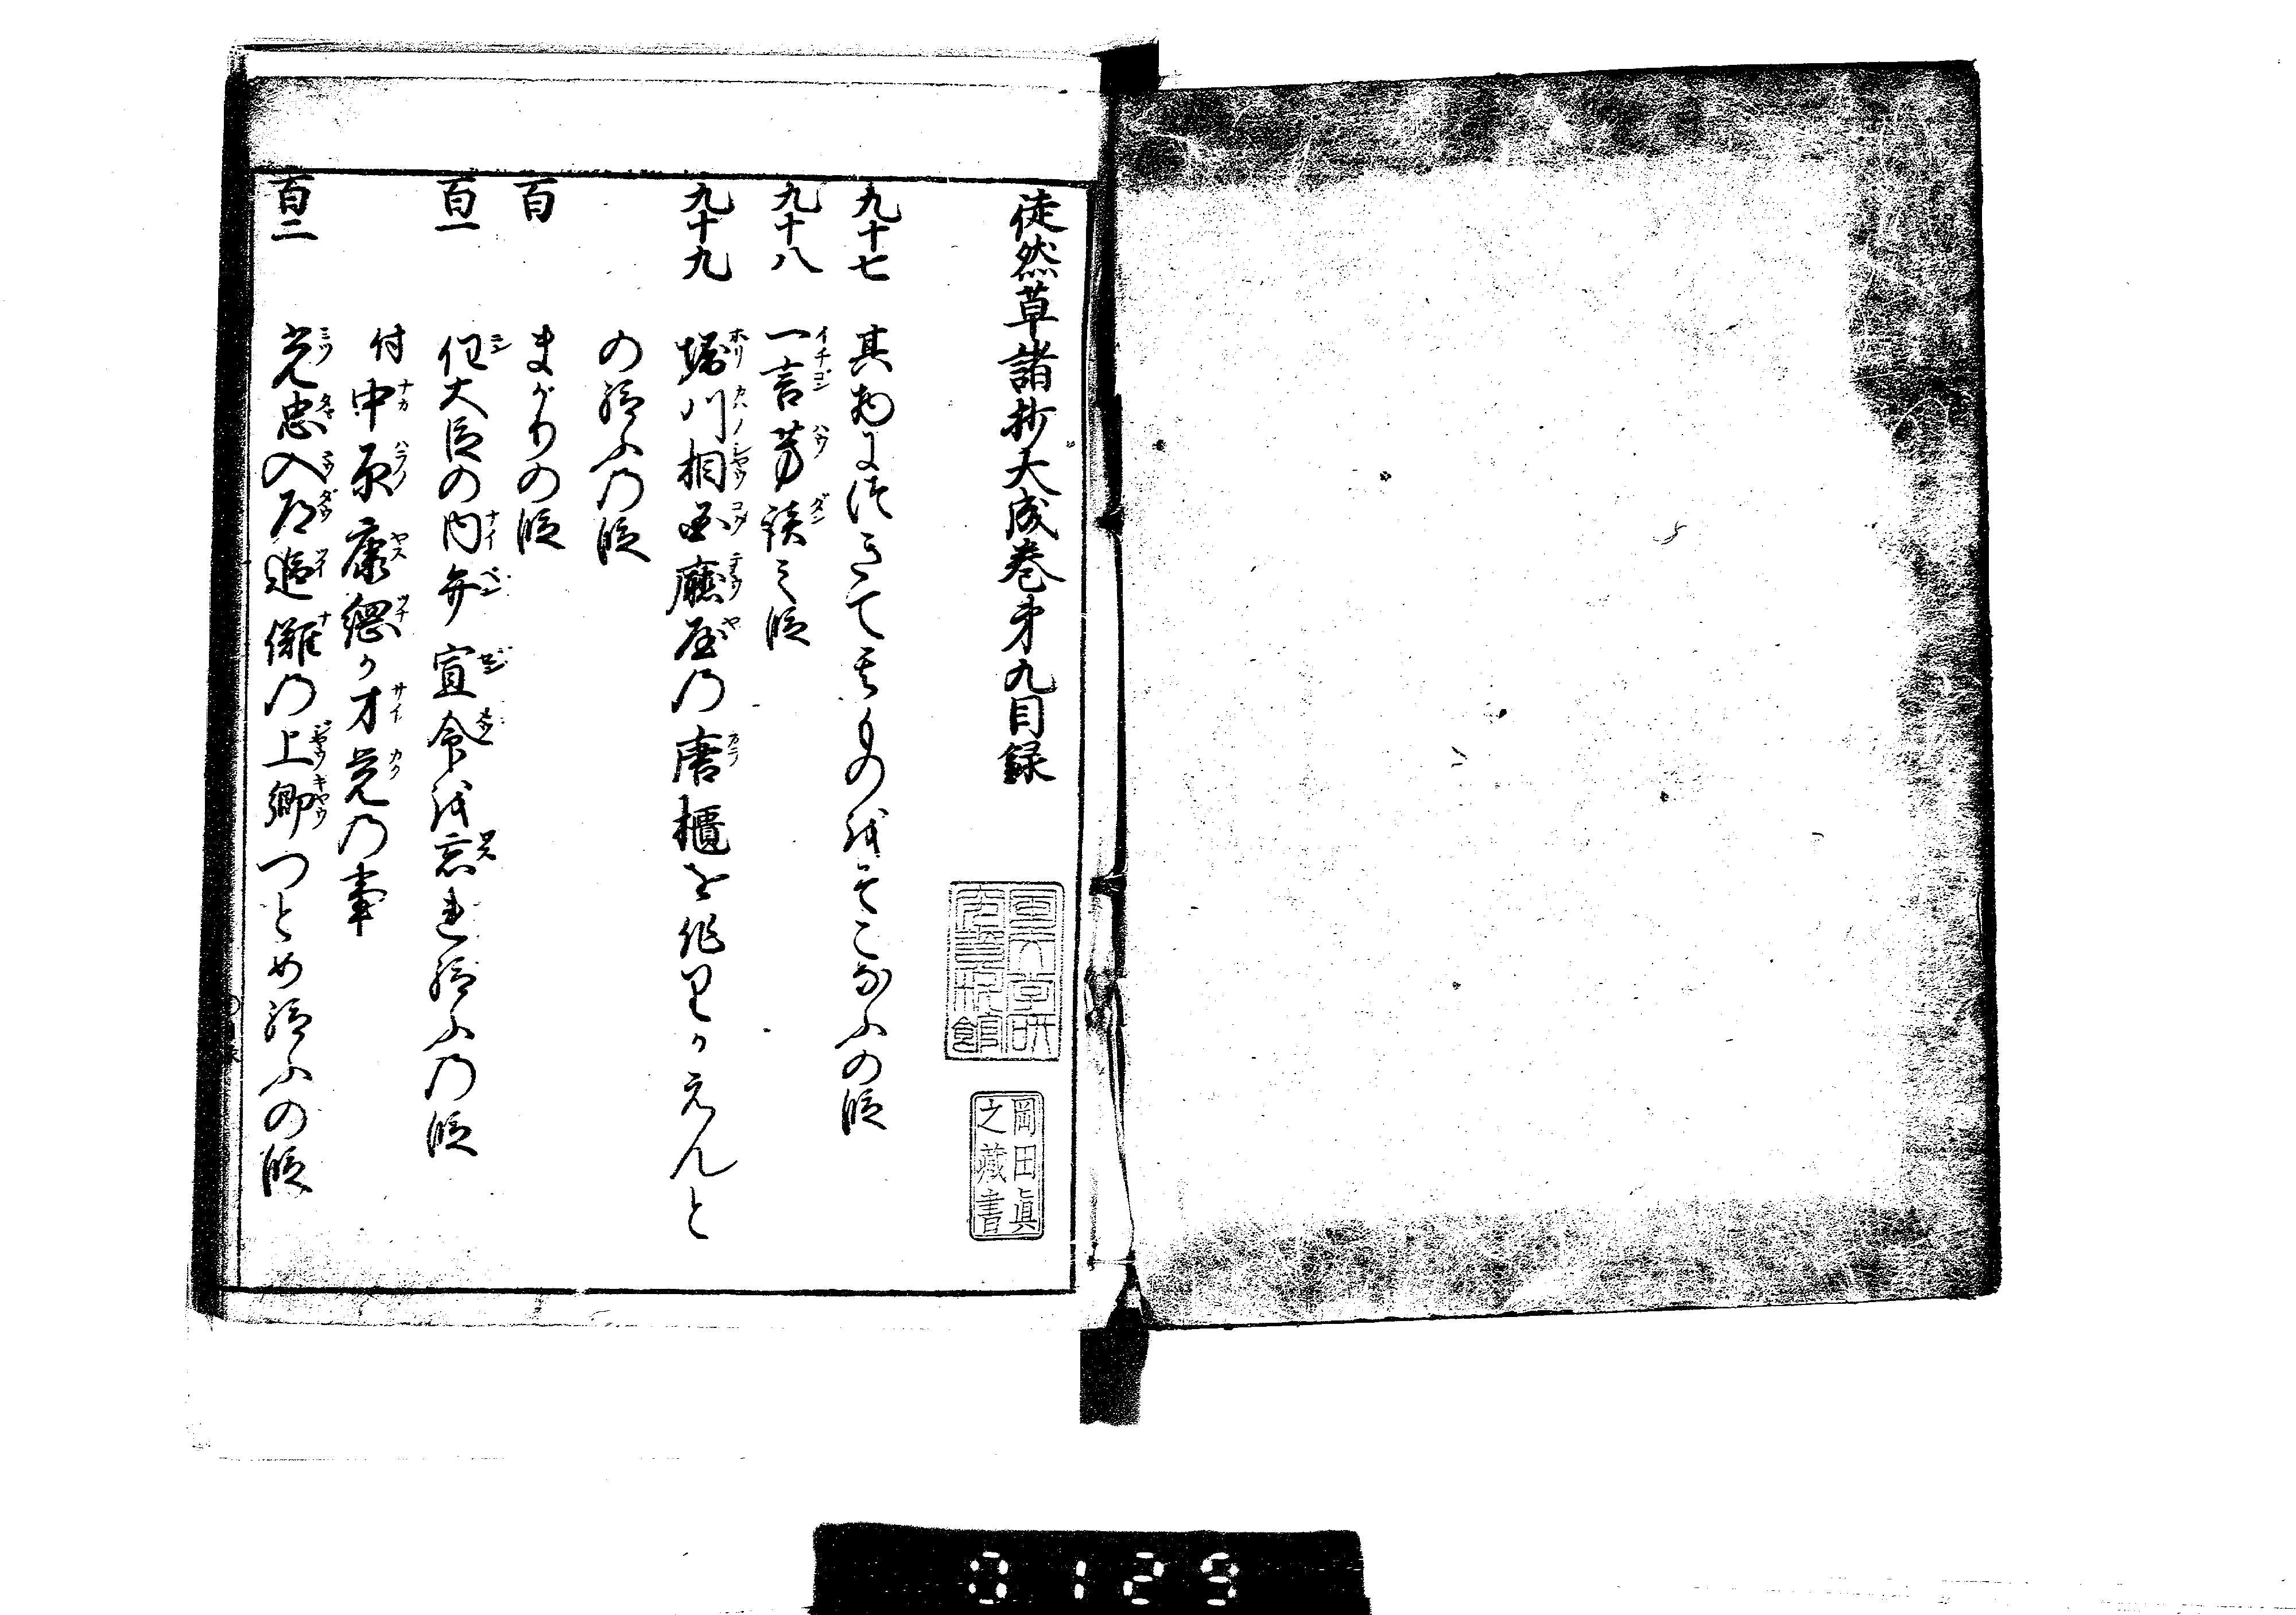 徒然草諸抄大成巻第九目録
九十七 其物につきて其ものをそこなふの段
九十八 一言芳談之段
九十九 堀川相国廳屋の唐櫃を作りかえんと
の給ふの段
百 まがりの段
百一 任大臣の内弁宣命を忘れ給ふの段
付中原康綱か才覚の事
百二 光忠入道追儺の上卿つとめ給ふの段
岡田眞
之藏書
0129